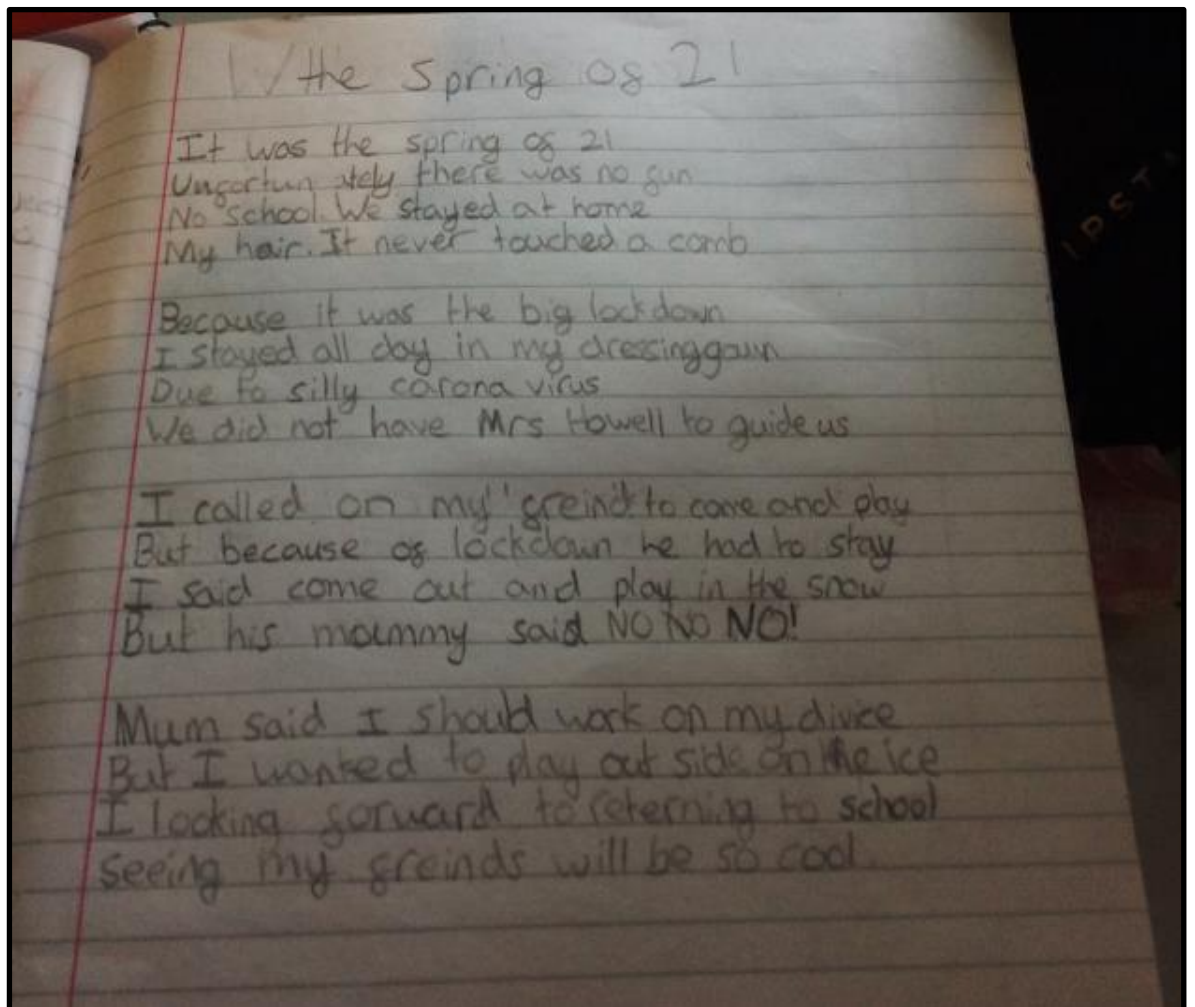 the Spring of 21
It was the spring of 21
Unfortunately there was no fun
No school. We stayed at home
My hair. It never touched a comb
Because it was the big lockdown
I stayed all day in my dressinggown
Due to silly carona virus
We did not have Mrs Howell to guide us
I called on my freind to come and play
But because of lockdown he had to stay
I said come out and play in the snow
But his mammy said NO NO NO!
Mum said I should work on my divice
But I wanted to play out side on the ice
I looking forward to reterning to school
seeing my freinds will be so cool.